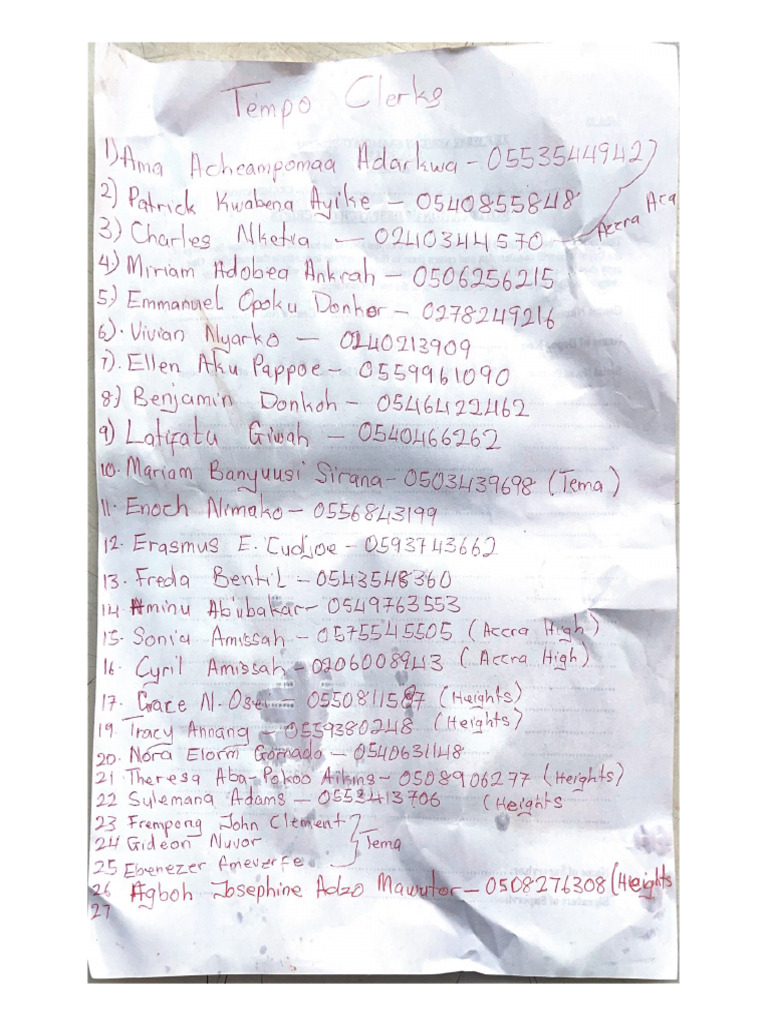 Tempo Clerks
1) Ama Acheampomaa Adarkwa - 0553544942
2) Patrick Kwabena Ayike - 0540855848
Accra Aca
3) Charles Nketia - 0240344570
4) Miriam Adobea Ankrah - 0506256215
5) Emmanuel Opoku Donkor - 0278249216
6). Vivian Nyarko - 0240213909
7). Ellen Aku Pappoe - 0559961090
8) Benjamin Donkoh - 0546422462
9) Latifatu Giwah - 0540466262
10. Mariam Banyuusi Sirana - 0503439698 (Tema)
11. Enoch Nimako - 0556843199
12. Erasmus E. Cudjoe - 0593743662
13. Freda Bentil - 0543548360
14. Aminu Abubakar - 0549763553
15. Sonia Amissah - 0575545505 (Accra High)
16. Cyril Amissah - 0206008943 (Accra High)
17. Grace N. Osei - 0550811587 (Heights)
19. Tracy Annang - 0559380248 (Heights)
20. Nora Elorm Gomado - 0540631148
21. Theresa Aba-Pokoo Aikins - 0508906277 (Heights)
22 Sulemana Adams - 0553413706 (Heights
23 Frempong John Clement
24 Gideon Nuvor
Tema
25 Ebenezer
26 Agboh Josephine Adzo Mawutor - 0508276308 (Heights
27